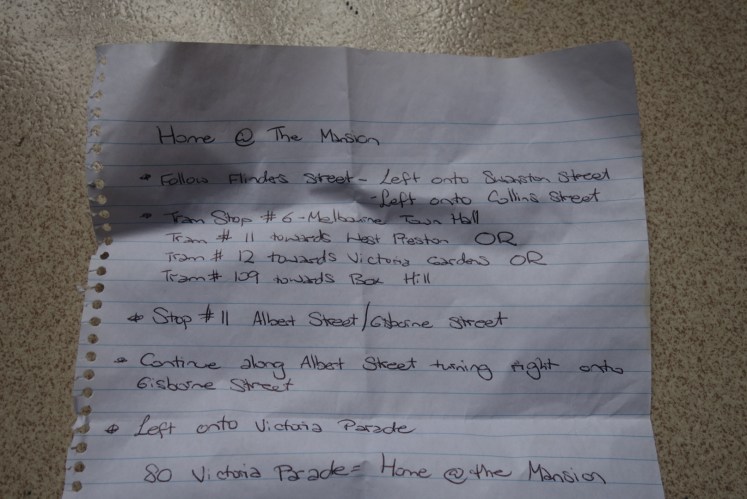 Home @ The Mansion
* Follow Flinders Street - Left onto Swanston Street
- Left onto Collins Street
* Tram Stop # 6 - Melbourne Town Hall
Tram # 11 towards West Preston OR
Tram # 12 towards Victoria Gardens OR
Tram # 109 towards Box Hill
* Stop # 11 Albert Street / Gisborne Street
* Continue along Albert Street turning right onto
Gisborne Street
* Left onto Victoria Parade
80 Victoria Parade = Home @ the Mansion